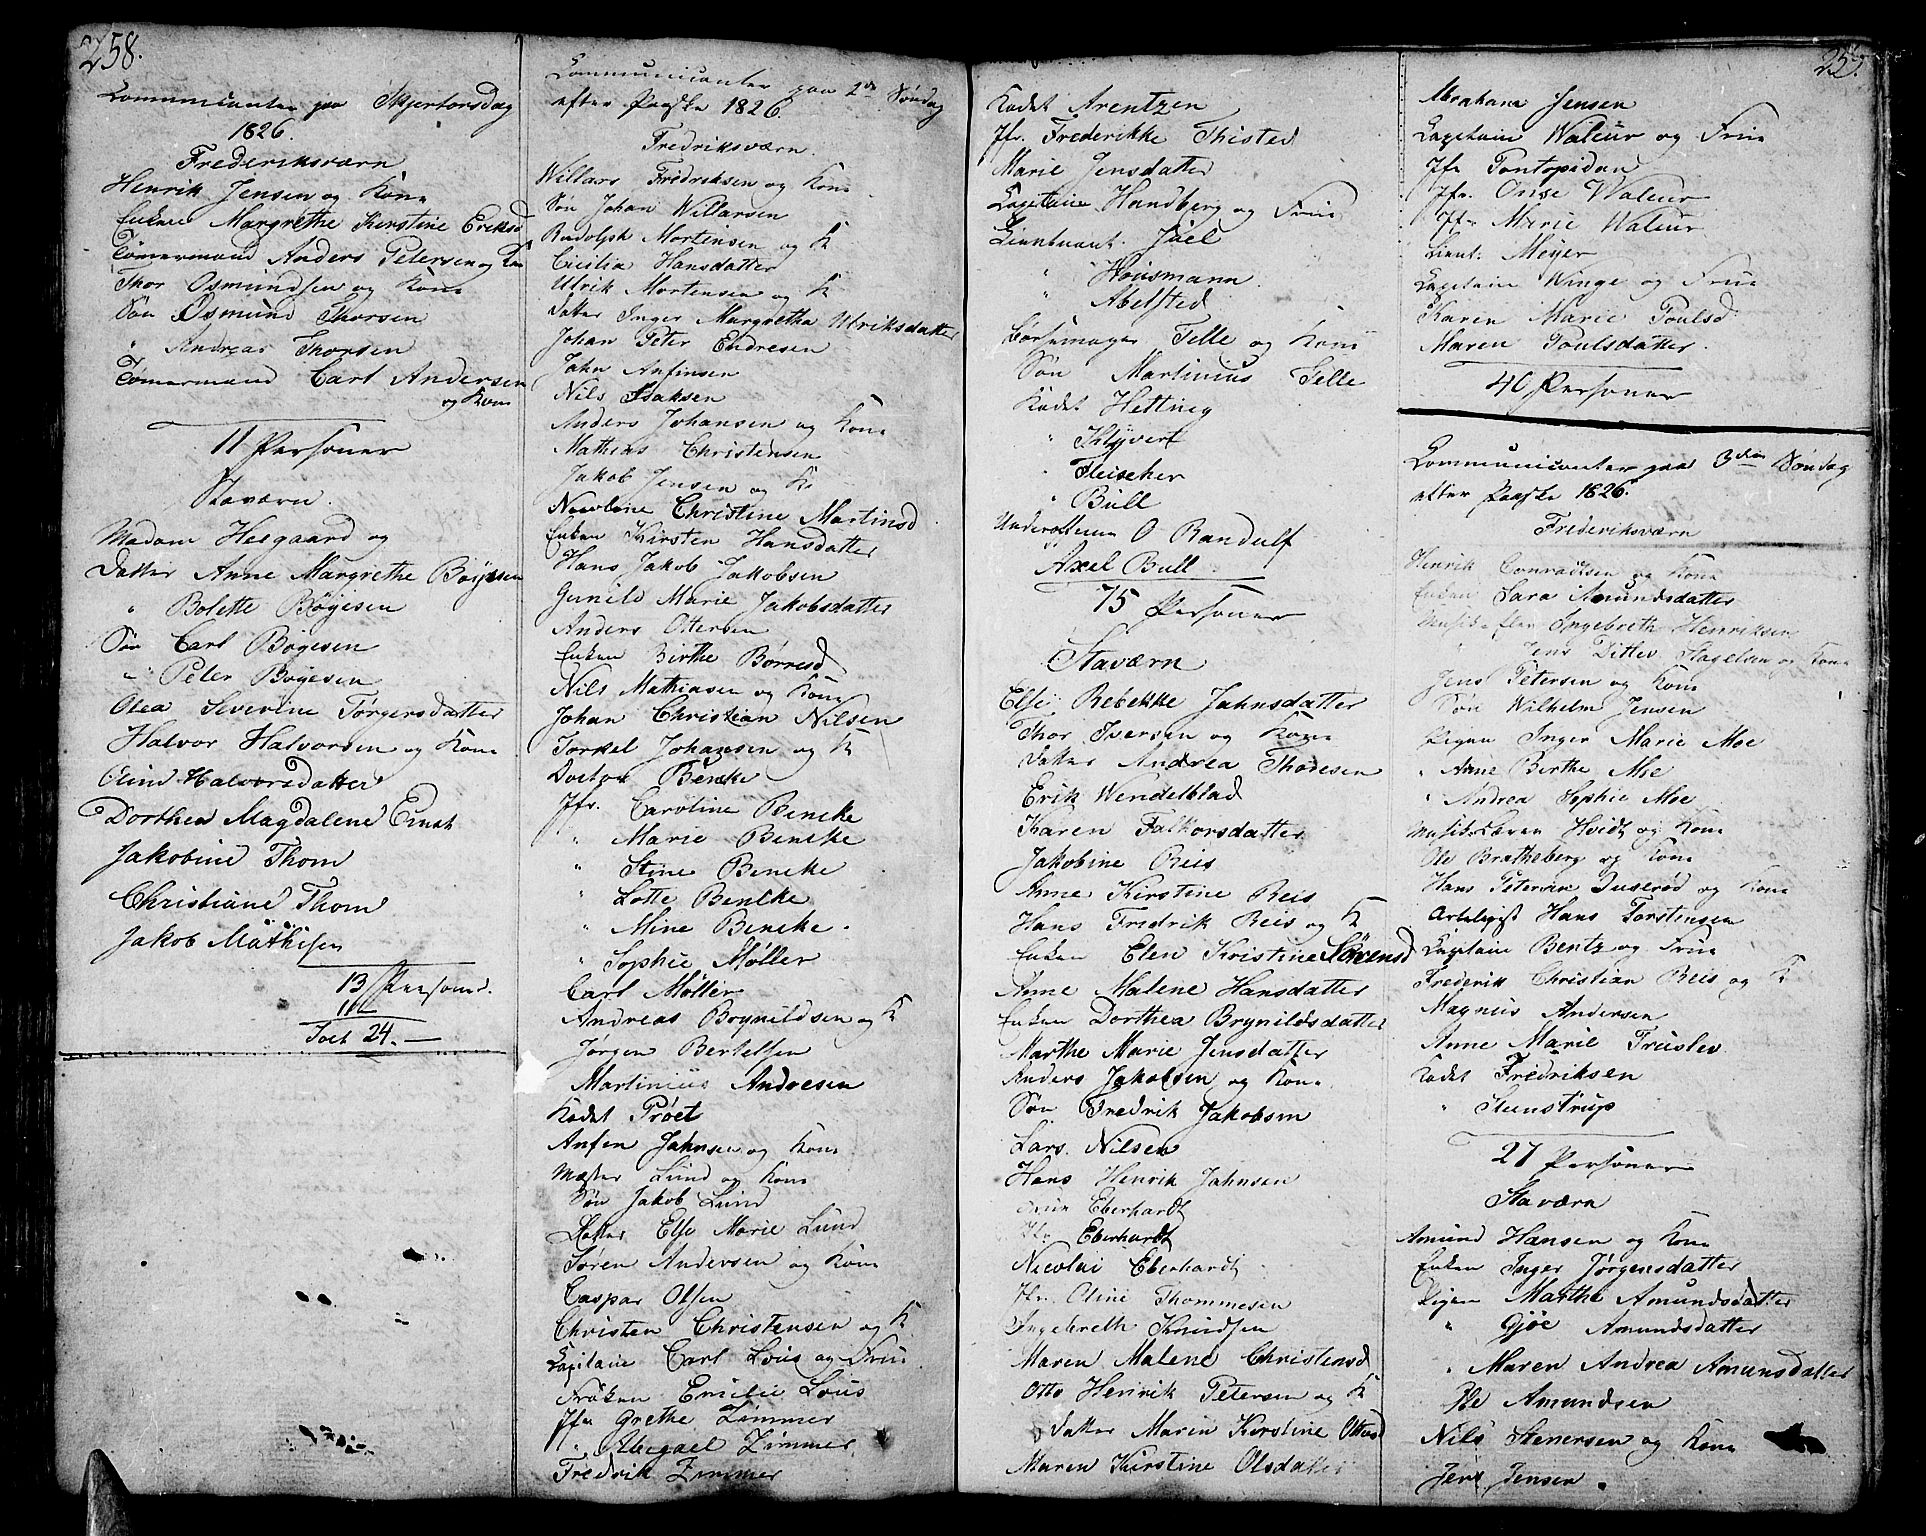 258.
Communicanter paa Skjertorsdag
1826.
Frederiksværn
Henrik Jensen og Kone
Enken Margrethe Kirstine Eriksd
Tømermand Anders Petersen og Kone
Thor Osmundsen og Kone
Søn Osmund Thorsen
" Andreas Thorsen
Tømermand Carl Andersen
og Kone
11 Personer
Staværn.
Madam Heegaard og
Datter Anne Margrethe Bøyesen
" Bolette Bøyesen
Søn Carl Bøyesen
" Peter Bøyesen
Olea Severine Torgersdatter
Halvor Halvorsen og Kone
Halvorsdatter
Dorthea Magdalene Ernst
Jakobine Thom
Christiane Thom
Jakob Mathisen
13 Personer
11
Talt 24.
Communicanter paa 2den Søndag
efter Paaske 1826
Fredriksværn.
Willars Fredriksen og Kone
Søn Johan Willarsen
Rudolph Mortensen og K
Cicilia Hansdatter
Ulrik Mortensen og K
Datter Inger Margretha Ulriksdatter
Johan Peter Endresen
Jahn Anfinsen
Nils Isaksen
Anders Johansen og Kone
Mathias Christensen
Jakob Jensen og K
Christine Martinsd
Enken Kirsten Hansdatter
Hans Jakob Jakobsen
Gunild Marie Jakobsdatter
Anders Ottersen
Enken Birthe Børresd
Nils Mathiasen og Kone
Johan Christian Nilsen
Torkel Johansen og K
Doctor Bencke
Jfr. Caroline Bencke
" Marie Bencke
" Stine Bencke
" Lotte Bencke
" Mine Bencke
" Sophie Møller
Carl Møller
Andreas Brynildsen og K
Jørgen Bertelsen
Martinius Andresen
Kadet Prøet
Anfen Jahnsen og Kone
Mester Lund og Kone
Søn Jakob Lund
Datter Else Marie Lund
Søren Andersen og Kone
Caspar Olsen
Christen Christensen og K
Capitaine Carl Lous og Frue
Frøken Emilie Lous
Jfr Grethe Zimmer
" Abegael Zimmer
Fredrik Zimmer
Kadet Arentzen
Jfr. Frederikke Thisted
Marie Jensdatter
Capitaine Handberg og Frue
Lieutnant Juel
" Housmann
" Abelsted
Telle og Kone
Søn Martinius Telle
Kadet Hetting
" Klÿvert
" Fleischer
" Bull
O Randulf
Axel Bull
75 Personer
Staværn
Else Rebekke Jahnsdatter
Thor Iversen og Kone
Datter Andrea Thoresen
Erik Wendelblad
Karen Falkorsdatter
Jakobine Reis
Anne Kirstine Reis
Hans Fredrik Reis og K
Enken Elen Kristine Sörensd
Anne Malene Hansdatter
Enken Dorthea Brynildsdatter
Marthe Marie Jensdatter
Anders Jakobsen og Kone
Søn Fredrik Jakobsen
Lars Nilsen
Hans Henrik Jahnsen
Frue Eberhardt
Jfr. Eberhardt
Nicolai Eberhardt
Jfr. Oline Thommesen
Ingebreth Knudsen
Maren Malene Christensd
Otto Henrik Petersen og K
Datter Maren Kirstine Ottosd
Maren Kirstine Olsdatter
259.
Abraham Jensen
Capitaine Waleur og Frue
Jfr Pontopidan
Jfr. Waleur
Jfr Marie Waleur
Lieut. Meyer
Capitaine Winge og Frue
Karen Marie Poulsd
Maren Poulsdatter
40 Personer
Communicanter paa 3die Søndag
efter Paaske 1826.
Frederiksværn
Henrik Conradtsen og Kone
Enken Sara Amundsdatter
Ingebreth Henriksen
" Jens Ditlev Hagelsen og Kone
Jens Petersen og Kone
Søn Wilhelm Jensen
Pigen Inger Marie Moe
" Anne Birthe Moe
" Andrea Sophie Moe
Hvidt og Kone
Ole Bratheberg og Kone
Hans Petersen og Kone
Hans Torstensen
Capitaine Bentz og Frue
Frederik Christian Reis og K
Magnus Andersen
Anne Marie Truslev
Kadet Fredriksen
" Steenstrup
27 Personer
Staværn
Amund Hansen og Kone
Enken Inger Jørgensdatter
Pigen Marthe Amundsdatter
" Gjøe Amundsdatter
" Maren Andrea Amunsdatter
Ole Amundsen
Nils Stenersen og Kone
Jens Jensen.